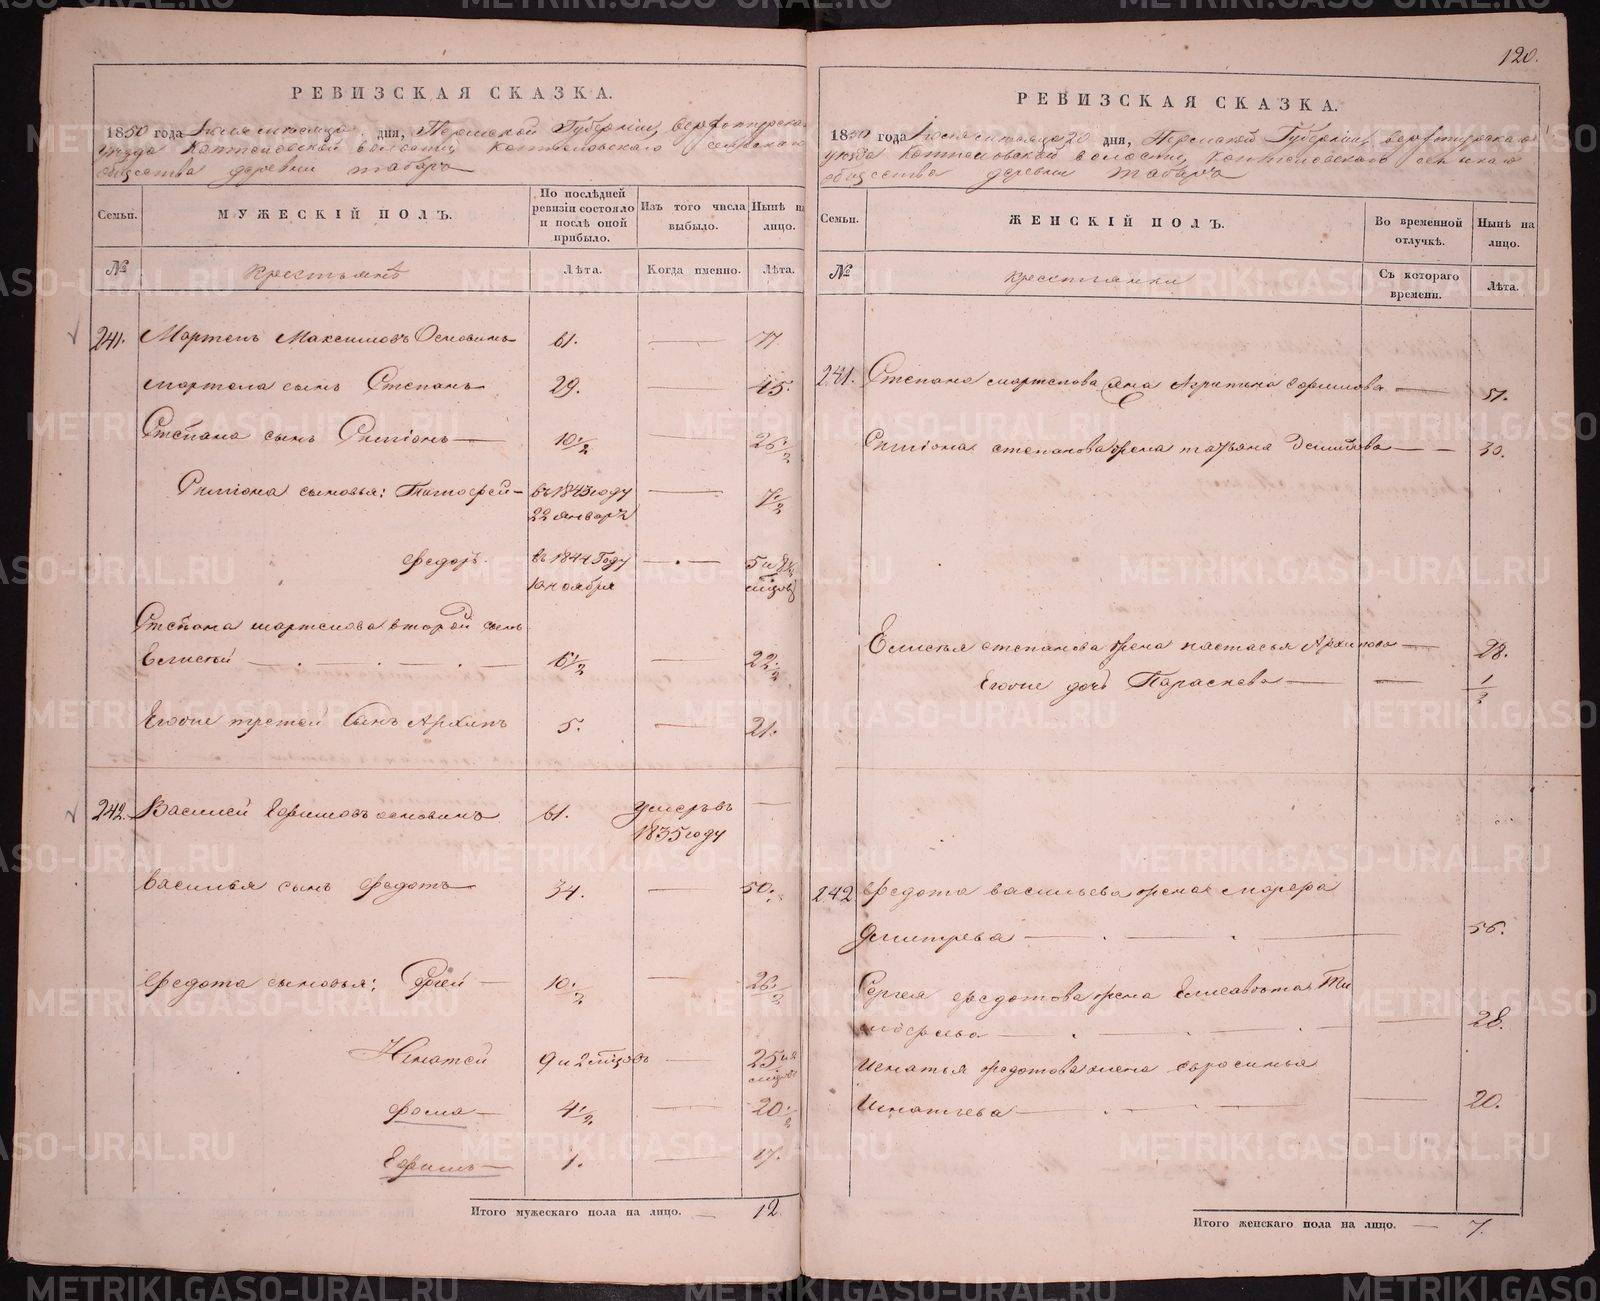 120.
РЕВИЗСКАЯ СКАЗКА.
1850 года Іюня месяца дня, Пермской Губерніи, верхотурска
уезда Коптеловской волости, коптеловскаго сельскаго
общества деревни таборъ
Семьи.
МУЖЕСКІЙ ПОЛЪ.
По послѣдней ревизіи состояло и послѣ оной прибыло.
Изъ того числа выбыло.
Нынѣ на лицо.
№
крестьянѣ
Лѣта.
Когда именно.
Лѣта.
241. Мартенъ Максимовъ Основинъ 61. — 77
мартена сынъ Степанъ 29. — 45.
Степана сынъ — 10 1/2 — 26 1/2
сыновья: Тимофей — въ 1843 году — 7 1/2
22 январѣ
Федоръ въ 1844 Году — 5 и
10 ноября місцовъ
Степана мартенова второй сынъ
Елисѣй — 6 1/2 — 22 1/2
Егоже третей Сынъ Архипъ 5. — 21.
242. Василей Ефимовъ основинъ 61. умеръ въ —
1835 году
Василья сынъ Федотъ 34. — 50.
Федота сыновья: — 10 1/2 — 26 1/2
Игнатей 9 и 2 місцовъ — 25 и 2
місцовъ
Фома — 4 1/2 — 20 1/2
Ефимъ — 1. — 17.
Итого мужескаго пола на лицо. — 12.
РЕВИЗСКАЯ СКАЗКА.
1850 года Іюня месяца 20 дня, Пермской Губерніи, верхотурскаго
уезда Коптеловской волости, коптеловскаго сельскаго
общества деревни Таборъ
Семьи.
ЖЕНСКІЙ ПОЛЪ.
Во временной отлучкѣ.
Нынѣ на лицо.
№
крестьянки
Съ котораго времени.
Лѣта.
241. Степана мартенова жена Агрипина — 51.
степанова жена татьяна — 30.
Елисея степанова жена настасья Архипова — 28.
Егоже дочь Парасковья — — 1/2
242 Федота васильева жена
Дмитрева — 56.
Сергея федотова жена Елисавета
— 28.
Игнатья федотова жена ефросинья
Игнатьева — 20.
Итого женскаго пола на лицо. — 7.
METRIKI.GASO-URAL.RU